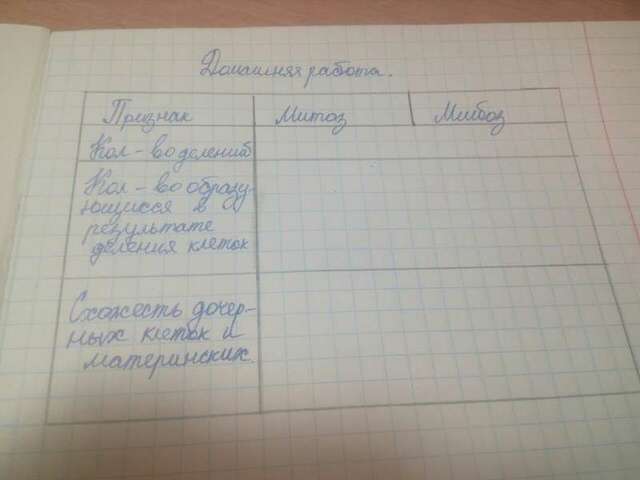 Домашняя работа.
Признак Митоз Миёоз
Кол-во делений
Кол-во образу-
ющихся в
результате
деления клеток
Схожесть дочер-
ных клеток и
материнских.